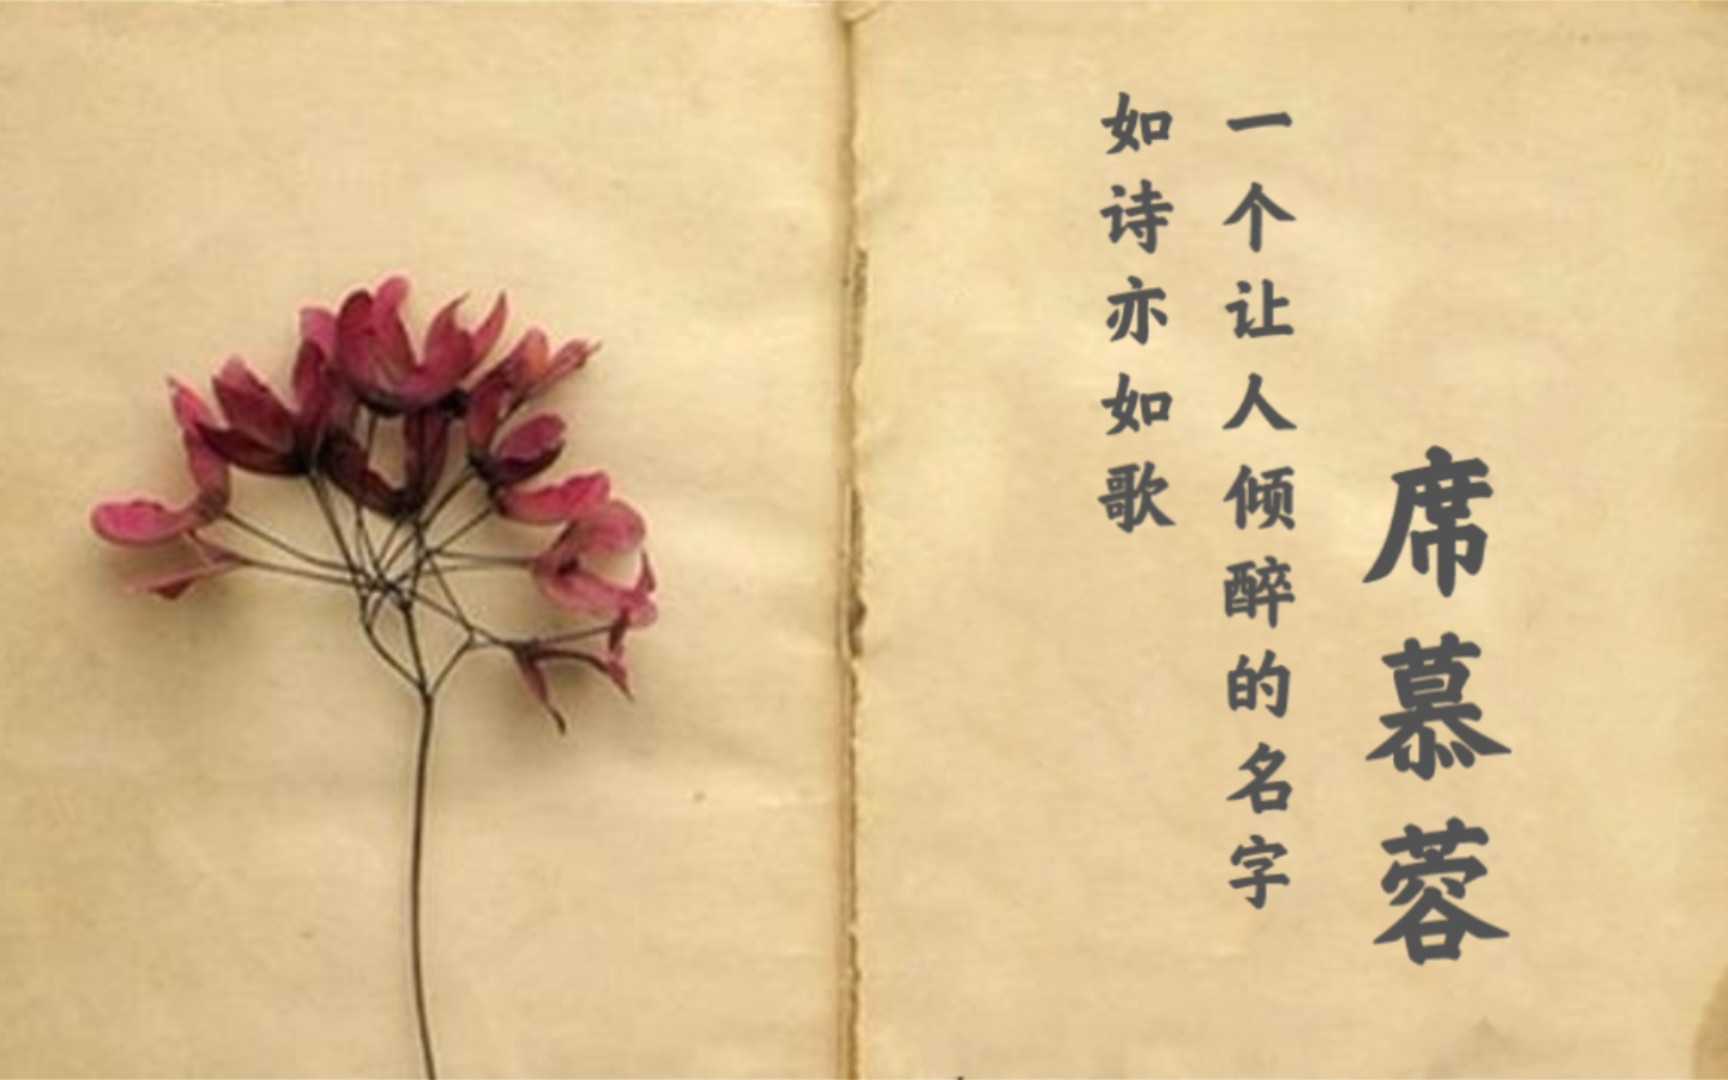 席慕蓉
一个让人倾醉的名字
如诗亦如歌